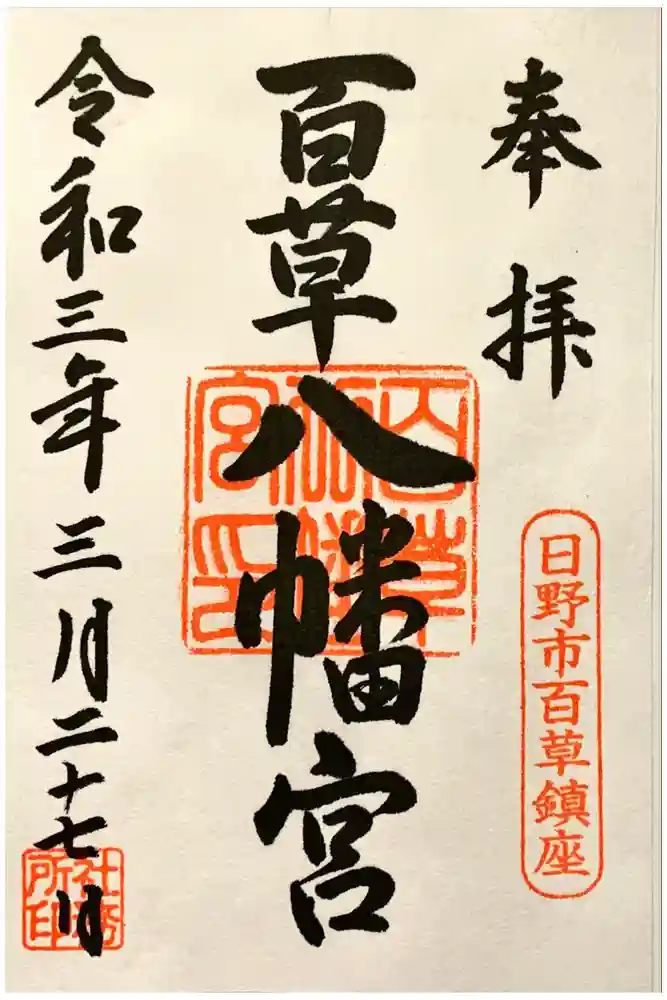 奉拝
日野市百草鎮座
百草八幡宮
百草八幡宮印
令和三年三月二十七日
社務所印